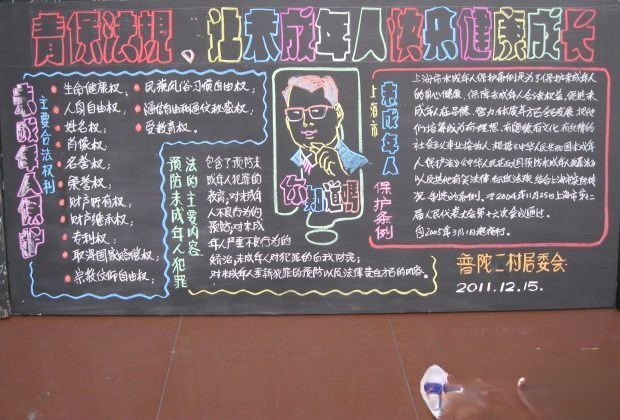 青保法规、让未成年人快乐健康成长
未成年人保护
主要合法权利
生命健康权;
人身自由权;
姓名权;
肖像权;
名誉权;
荣誉权;
财产所有权;
财产继承权;
专利权;
取得国家赔偿权;
宗教信仰自由权;
民族风俗习惯自由权;
通信自由和通信秘密权;
受教育权。
预防未成年人犯罪
法的主要内容
包含了预防未
成年人犯罪的
教育;对未成年
人不良行为的
预防;对未成
年人严重不良行为的
矫治;未成年人对犯罪的自我防范;
对未成年人重新犯罪的预防以及法律责任方面的内容。
你知道吗
上海市
未成年人
保护条例
上海市未成年人保护条例是为了保护未成年人
的身心健康,保障未成年人合法权益,促进未
成年人在品德、智力、体质等方面全面发展,把他
们培养成为有理想、有道德、有文化、有纪律的
社会主义事业接班人,根据《中华人民共和国未成年
人保护法》《中华人民共和国预防未成年人犯罪法》
以及其他有关法律、行政法规,结合上海市实际情
况,制定的条例。于2004年11月25日上海市第十二
届人民代表大会第十六次会议通过。
自2005年3月1日起施行。
普陀二村居委会
2011.12.15.